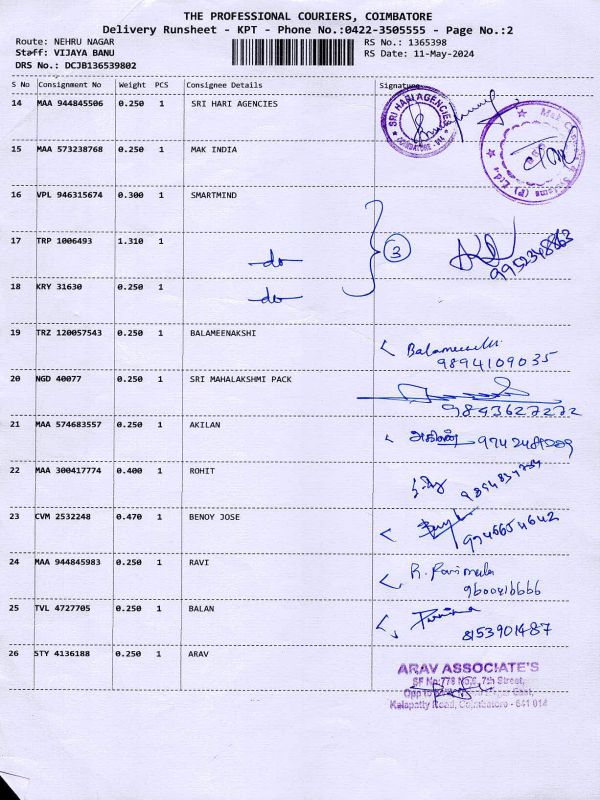 THE PROFESSIONAL COURIERS, COIMBATORE
Delivery Runsheet - KPT - Phone No.:0422-3505555 - Page No.:2
Route: NEHRU NAGAR RS No.: 1365398
Staff: VIJAYA BANU RS Date: 11-May-2024
DRS No.: DCJB136539802
S No Consignment No Weight PCS Consignee Details Signature
14 MAA 944845506 0.250 1 SRI HARI AGENCIES
SRI HARI AGENCIES
COIMBATORE
15 MAA 573238768 0.250 1 MAK INDIA
16 VPL 946315674 0.300 1 SMARTMIND
17 TRP 1006493 1.310 1
do 3 9952348863
18 KRY 31630 0.250 1
do
19 TRZ 120057543 0.250 1 BALAMEENAKSHI
9894109035
20 NGD 40077 0.250 1 SRI MAHALAKSHMI PACK
9843627272
21 MAA 574683557 0.250 1 AKILAN
22 MAA 300417774 0.400 1 ROHIT
23 CVM 2532248 0.470 1 BENOY JOSE
24 MAA 944845983 0.250 1 RAVI
25 TVL 4727705 0.250 1 BALAN
8153901487
26 STY 4136188 0.250 1 ARAV
ARAV ASSOCIATE'S
7th Street,
Kalapatty Road, Coimbatore - 641 014